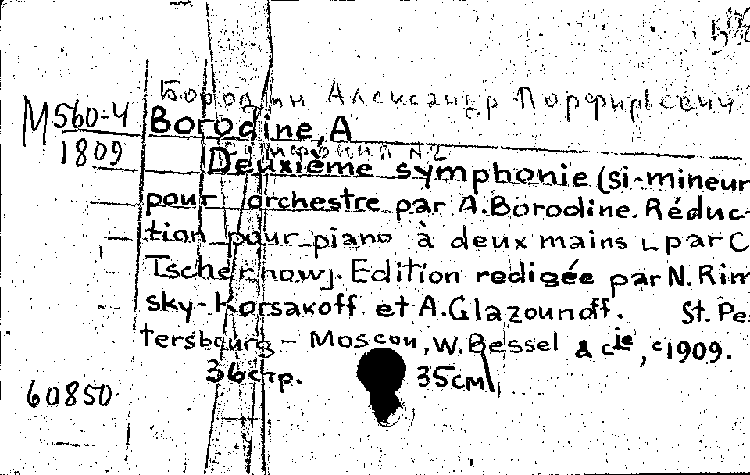 Бородин Александр Порфирьевич
М560-4 Borodine, A
1809 Симфония №2
Deuxième symphonie (si-mineur
pour orchestre par A. Borodine. Réduc-
tion pour piano à deux mains par C
Tschernow. Edition redigée par N. Rim
sky-Korsakoff et A. Glazounoff. St. Pe
tersbourg - Moscou, W. Bessel & cie, c1909.
36 стр. 35см
60850